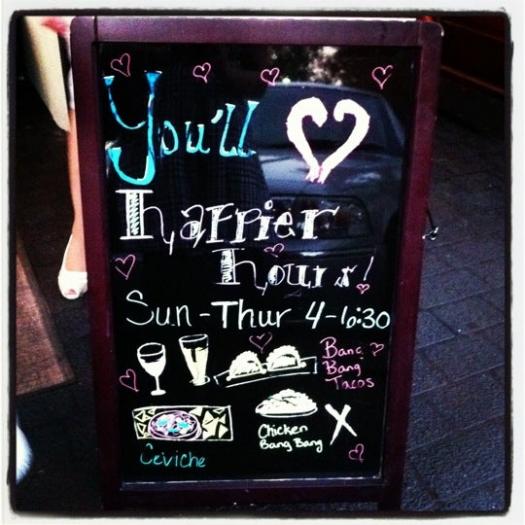 You'll
happier
hours!
Sun-Thur 4-6:30
Bang
Bang
Tacos
Chicken
Bang Bang
Ceviche